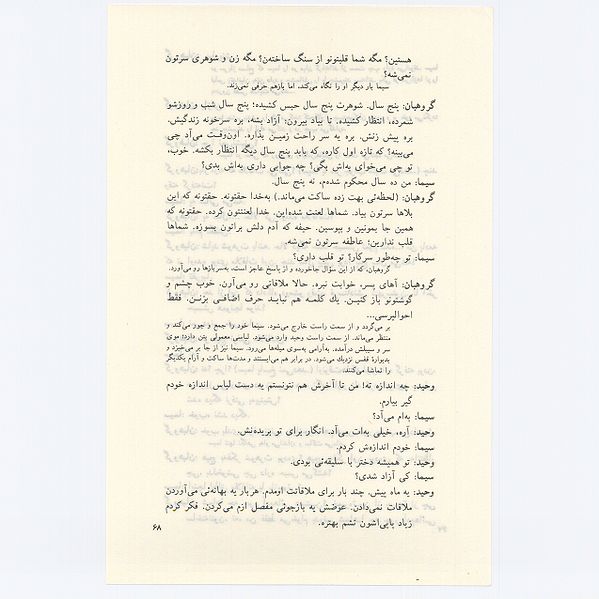 هستین؟ مگه شما قلبتونو از سنگ ساخته‌ن؟ مگه زن و شوهری سرتون
نمی‌شه؟
سیما بار دیگر او را نگاه می‌کند، اما بازهم حرفی نمی‌زند.
گروهبان: پنج سال. شوهرت پنج سال حبس کشیده؛ پنج سال شب و روزشو
شمرده، انتظار کشیده. تا بیاد بیرون؛ آزاد بشه، بره سرخونه زندگیش.
بره پیش زنش. بره یه سر راحت زمین بذاره. اون‌وقت می‌آد چی
می‌بینه؟ که تازه اول کاره، که باید پنج سال دیگه انتظار بکشه. خوب،
تو چی می‌خوای به‌اش بگی؟ چه جوابی داری به‌اش بدی؟
سیما: من ده سال محکوم شده‌م، نه پنج سال.
گروهبان: (لحظه‌ئی بهت زده ساکت می‌ماند.) به‌خدا حقتونه. حقتونه که این
بلاها سرتون بیاد. شماها لعنت شده‌این. خدا لعنتتون کرده. حقتونه که
همین جا بمونین و بپوسین. حیفه که آدم دلش براتون بسوزه. شماها
قلب ندارین؛ عاطفه سرتون نمی‌شه.
سیما: تو چه‌طور سرکار؟ تو قلب داری؟
گروهبان، که از این سؤال جاخورده و از پاسخ عاجز است، به‌سربازها رو می‌آورد.
گروهبان: آهای پسر، خوابت نبره. حالا ملاقاتی رو می‌آرن. خوب چشم و
گوشتونو باز کنین. یك کلمه هم نباید حرف اضافی بزنن. فقط
احوالپرسی...
بر می‌گردد و از سمت راست خارج می‌شود. سیما خود را جمع و جور می‌کند و
منتظر می‌ماند. از سمت راست وحید وارد می‌شود. لباسی معمولی بتن دارد؛ موی
سر و سبیلش درآمده. به‌آرامی به‌سوی میله‌ها می‌رود. سیما نیز از جا بر می‌خیزد و
بدیوارهٔ قفس نزدیك می‌شود. در برابر هم می‌ایستند و مدت‌ها ساکت و آرام یکدیگر
را تماشا می‌کنند.
وحید: چه اندازه ته! من تا آخرش هم نتونستم یه دست لباس اندازه خودم
گیر بیارم.
سیما: به‌ام می‌آد؟
وحید: آره، خیلی به‌ات می‌آد. انگار برای تو بریده‌نش.
سیما: خودم اندازه‌ش کردم.
وحید: تو همیشه دختر با سلیقه‌ئی بودی.
سیما: کی آزاد شدی؟
وحید: یه ماه پیش. چند بار برای ملاقاتت اومدم. هربار یه بهانه‌ئی می‌آوردن
ملاقات نمی‌دادن. عوضش یه بازجوئی مفصل ازم می‌کردن. فکر کردم
زیاد پاپی‌اشون نشم بهتره.
۶۸